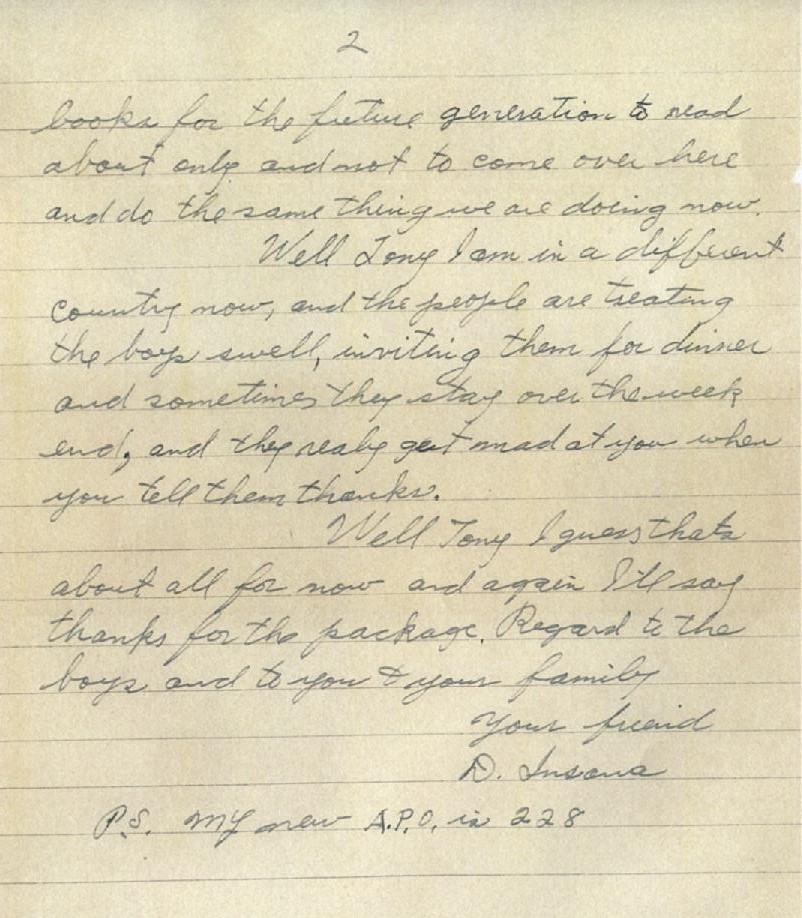 2
books for the future generation to read
about only and not to come over here
and do the same thing we are doing now.
Well Tony I am in a different
country now, and the people are treating
the boys swell, inviting them for dinner
and sometimes they stay over the week
end, and they realy get mad at you when
you tell them thanks.
Well Tony I guess thats
about all for now and again I'll say
thanks for the package. Regard to the
boys and to you & your family
Your friend
D. Insana
P.S. My new A.P.O. is 228